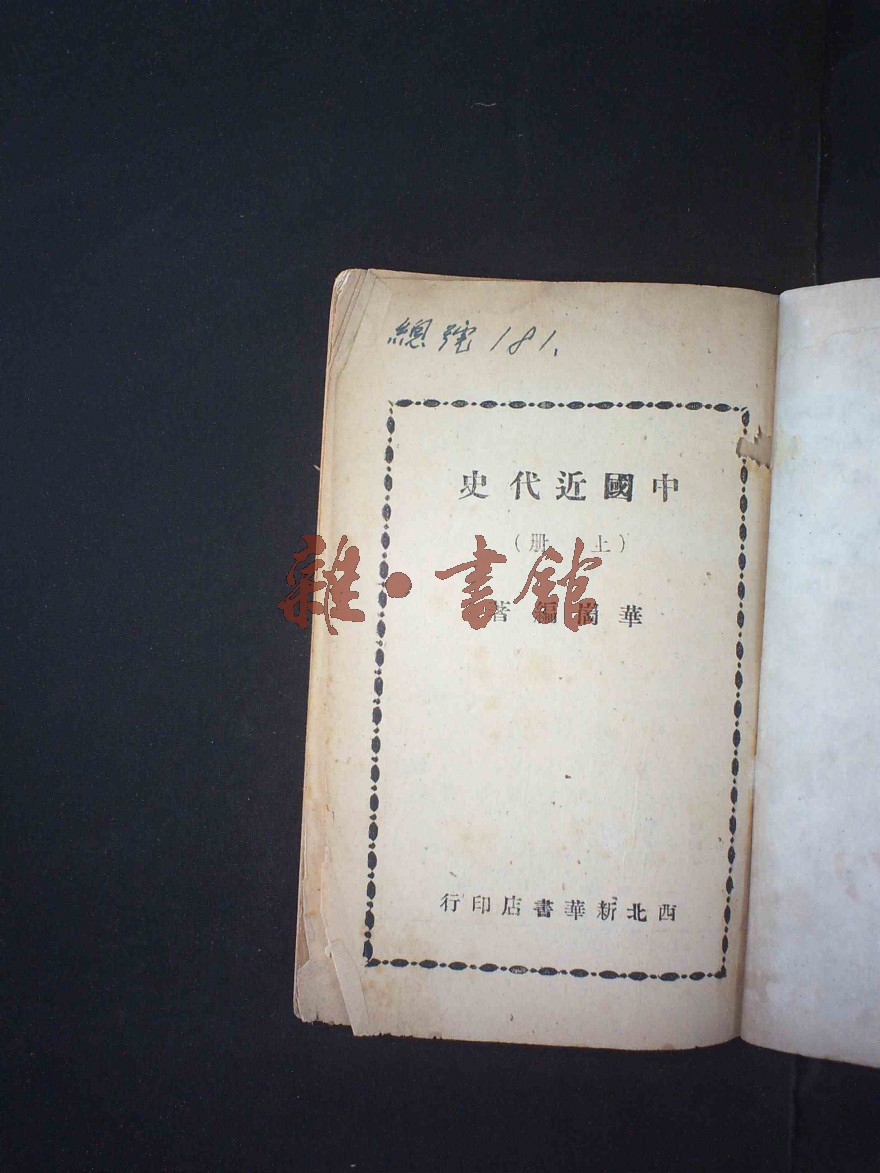 總號 181.
中國近代史
(上 册)
華崗編著
西北新華書店印行
雜·書館